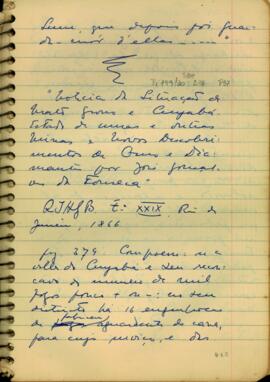 Lume, que depois foi guar-
da-mór d'ellas ......"
"Noticia da Situação de
Mato Grosso e Cuyabá:
Estado de umas e outras
Minas e Novos Descobri-
mentos de Ouro e Dia-
mantes por José Gonçal-
ves da Fonseca"
RIHGB T: XXIX Rio de
Janeiro, 1866
pg 379 Compoem-se a
villa do Cuyabá e seu recon-
cavo do numero de mil
fogos pouco + ou -: no seu
districto ha 16 engenhocas
de fabricar aguardente de cana,
para cujo serviço, e dos